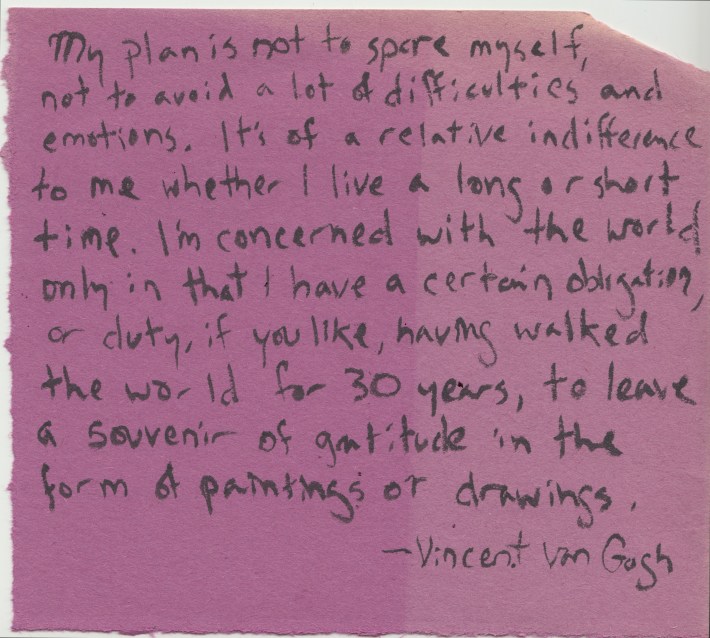 My plan is not to spare myself,
not to avoid a lot of difficulties and
emotions. It's of a relative indifference
to me whether I live a long or short
time. I'm concerned with the world
only in that I have a certain obligation,
or duty, if you like, having walked
the world for 30 years, to leave
a souvenir of gratitude in the
form of paintings or drawings.
—Vincent van Gogh